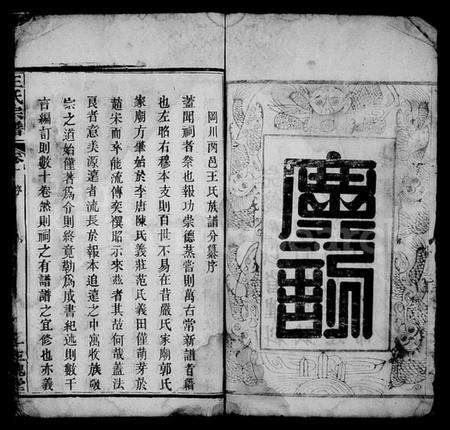 岡川丙邑王氏族譜分纂序
蓋聞祠者祭也報功崇德蒸嘗則萬古常新譜者籍
也左昭右穆本支則百世不易在昔嚴氏家廟郭氏
家廟方肇始於李唐陳氏義莊范氏義田僅萌芽於
趙宋而卒能流傳奕禩昭示來茲者其故何哉蓋法
良者意美源遠者流長於報本追遠之中寓收族敬
宗之道始僅著為令則終竟勒為成書紀述則數千
言編訂則數十卷然則祠之有譜譜之宜修也亦義
王氏宗譜
序